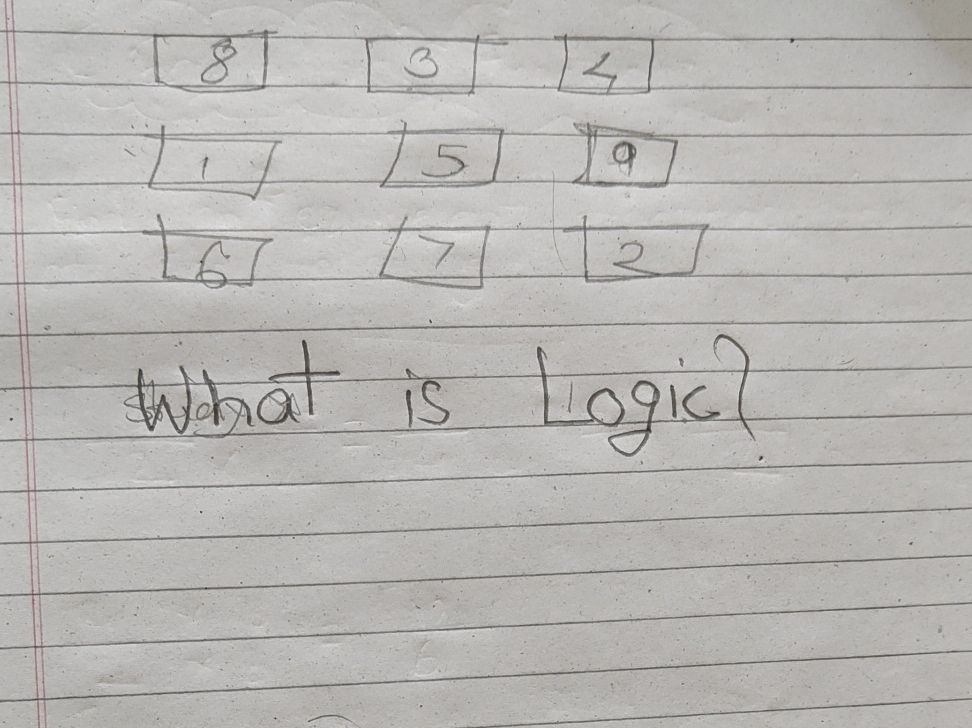 8 3 4
1 5 9
6 7 2
What is Logic?